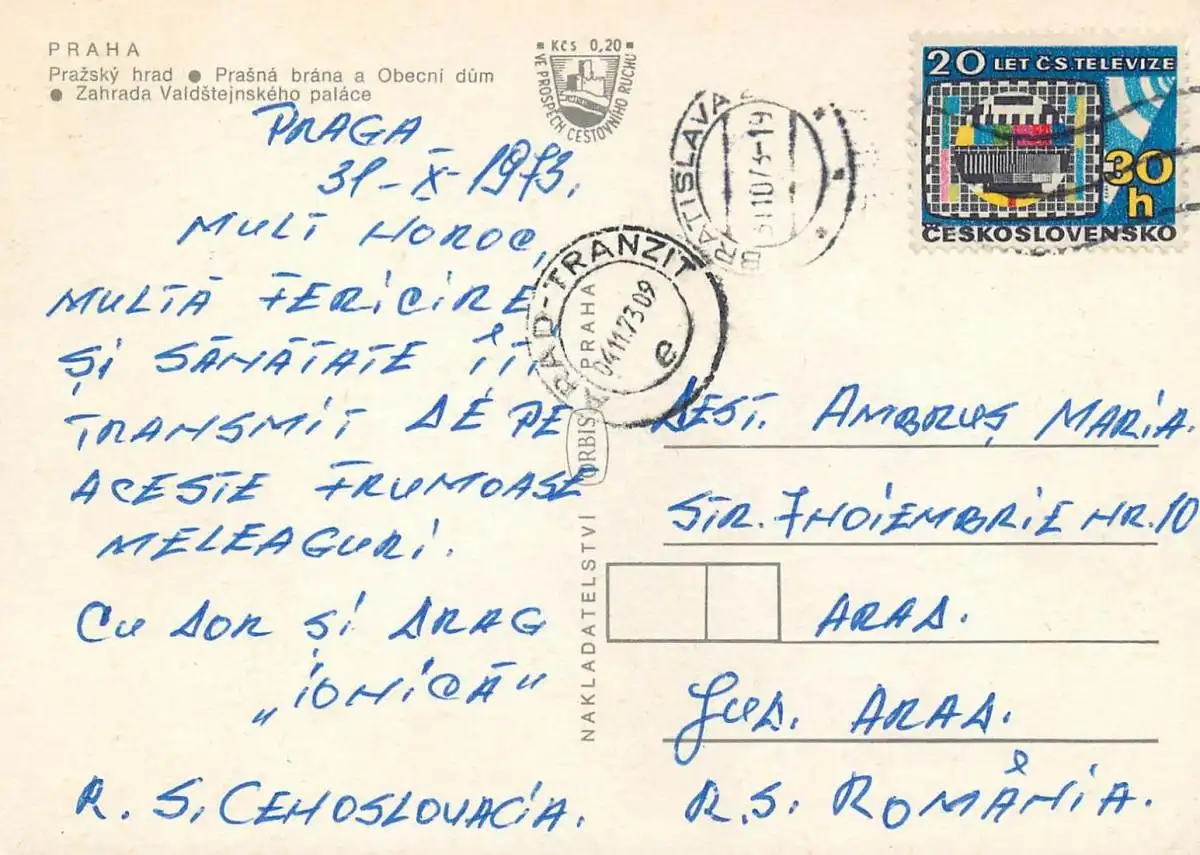 PRAHA
Pražský hrad ● Prašná brána a Obecní dům
● Zahrada Valdštejnského paláce
Kčs 0,20
VE PROSPĚCH CESTOVNÍHO RUCHU
PRAGA
31-X-1973.
MULT NOROC,
MULTĂ FERICIRE
ȘI SĂNĂTATE ÎȚI
TRANSMIT DE PE
ACESTE FRUMOASE
MELEAGURI.
CU DOR ȘI DRAG
„IONICĂ"
R. S. CEHOSLOVACIA.
BRATISLAVA
31.10.73-19
ARAD-TRANZIT
04.11.73 09
e
NAKLADATELSTVÍ ORBIS PRAHA
20 LET ČS. TELEVIZE
30 h
ČESKOSLOVENSKO
DEST. AMBRUȘ MARIA.
STR. 7 NOIEMBRIE NR. 10
ARAD.
JUD. ARAD.
R.S. ROMÂNIA.